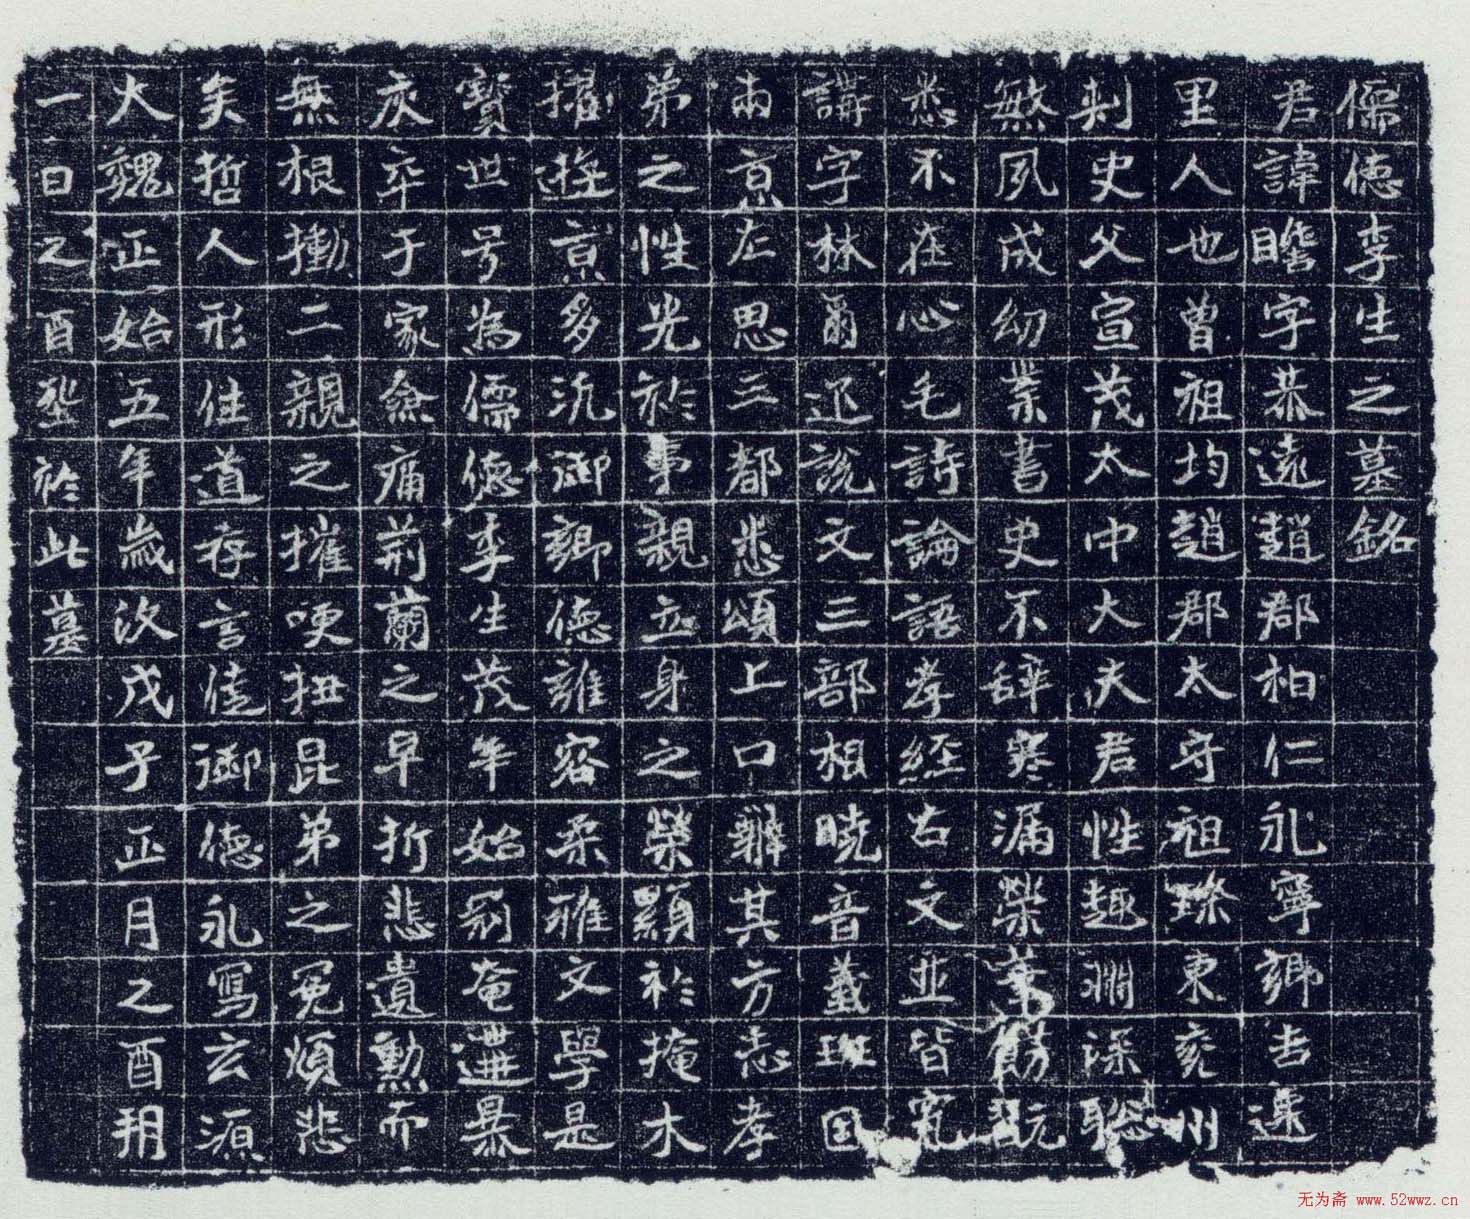 儒德李生之墓銘
君諱瞻字恭遠趙郡柏仁永寧鄉吉遷
里人也曾祖均趙郡太守祖璨東兗州
刾史父宣茂太中大夫君性趣淵深聡
慜夙成幼業書史不辞寒漏榮華餝翫
悉不在心毛詩論語孝經古文並皆究
講字林爾疋說文三部相曉音義班固
兩京左思三都悉頌上口辯其方志孝
弟之性光於事親立身之榮顯於掩木
擢遊京多沉御鄉德誰容柔雍文學是
寳世号為儒德李生茂年始別奄遘暴
疾卒于家僉痛荊蘭之早折悲遺勳而
無根慟二親之摧哽抽昆弟之冤煩悲
矣哲人形往道存言徒御德永寫玄源
大魏正始五年歲次戊子正月之酉朔
一日之酉塟於此墓
无为斋 www.52wwz.cn